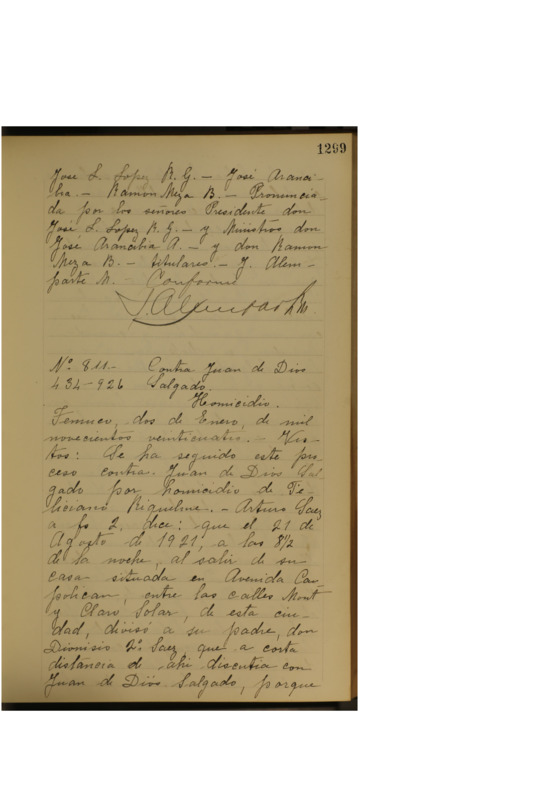 1299
José L. Lopez R. G. — José Aranci-
bia. — Ramon Meza B. — Pronuncia-
da por los señores Presidente don
José L. Lopez R. G. — y Ministros don
José Arancibia A. — y don Ramon
Meza B. — titulares. — J. Alem-
parte M. — Conforme
J. Alemparte M.
Nº 811.- Contra Juan de Dios
434-926 Salgado.
Homicidio.
Temuco, dos de Enero, de mil
novecientos veinticuatro. — Vis-
tos: Se ha seguido este pro
ceso contra Juan de Dios Sal
gado por homicidio de Fe-
liciano Riquelme. — Arturo Saez
a fs 2, dice: que el 21 de
Agosto de 1921, a las 8½
de la noche, al salir de su
casa situada en Avenida Cau
polican, entre las calles Montt
y Claro Solar, de esta ciu-
dad, divisó a su padre, don
Dionisio 2º Saez, que a corta
distancia de ahi discutia con
Juan de Dios Salgado, porque